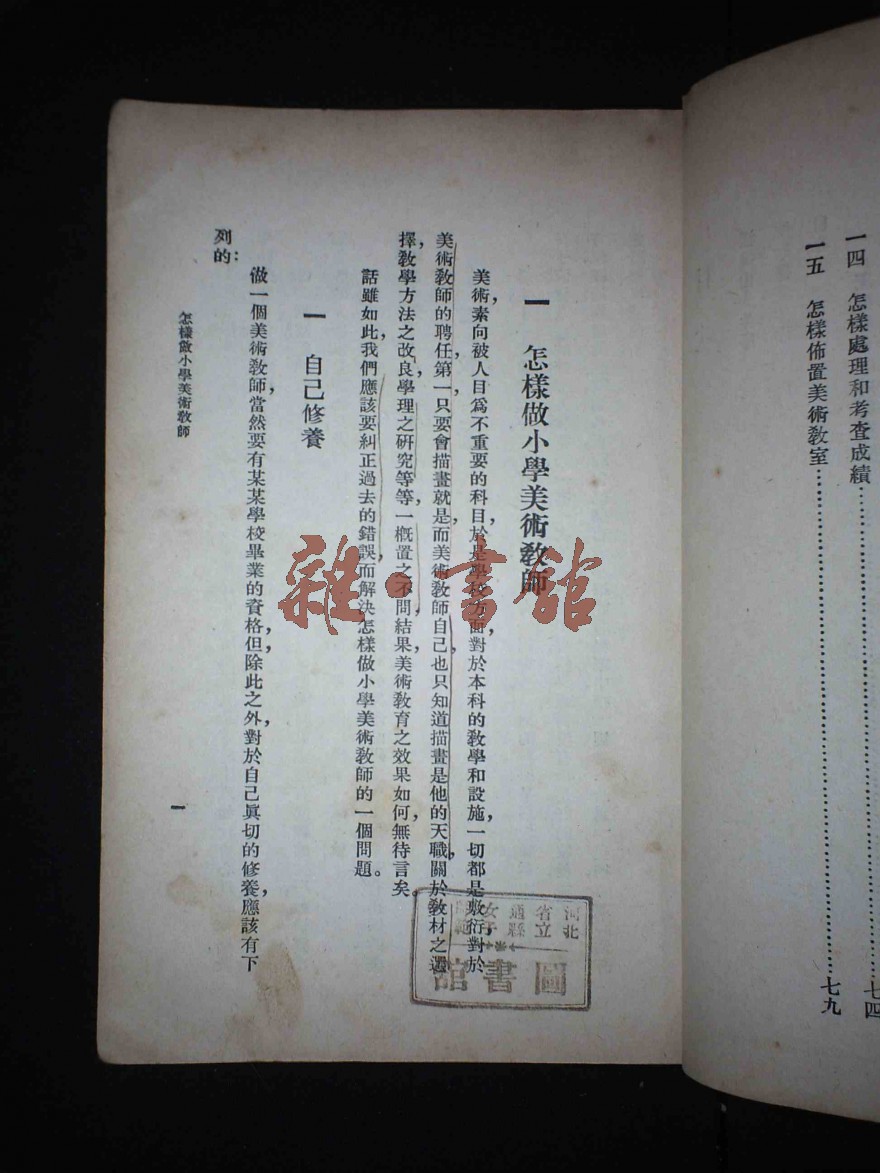 一四　怎樣處理和考查成績…………………………七四
一五　怎樣佈置美術教室…………………………七九
一　怎樣做小學美術教師
美術，素向被人目爲不重要的科目，於是學校方面，對於本科的教學和設施，一切都是敷衍，對於
美術教師的聘任，第一，只要會描畫就是，而美術教師自己，也只知道描畫是他的天職，關於教材之選
擇，教學方法之改良，學理之研究等等，一概置之不問，結果，美術教育之效果如何，無待言矣。
話雖如此，我們應該要糾正過去的錯誤，而解決怎樣做小學美術教師的一個問題。
一　自己修養
做一個美術教師，當然要有某某學校畢業的資格，但除此之外，對於自己眞切的修養，應該有下
列的：
怎樣做小學美術教師
一
河北
省立
通縣
女子
師範
圖書館
雜·書館